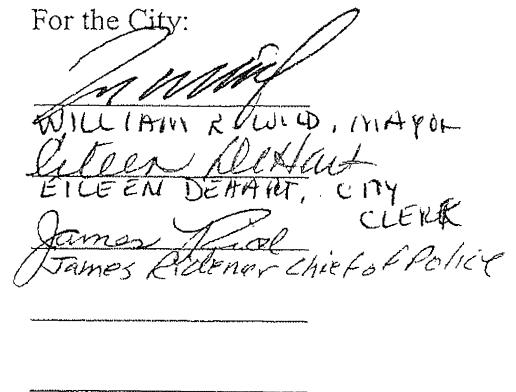 For the City:
WILLIAM R. WILD, MAYOR
Eileen DeHart
EILEEN DEHART, CITY
CLERK
James
James Ridener Chief of Police